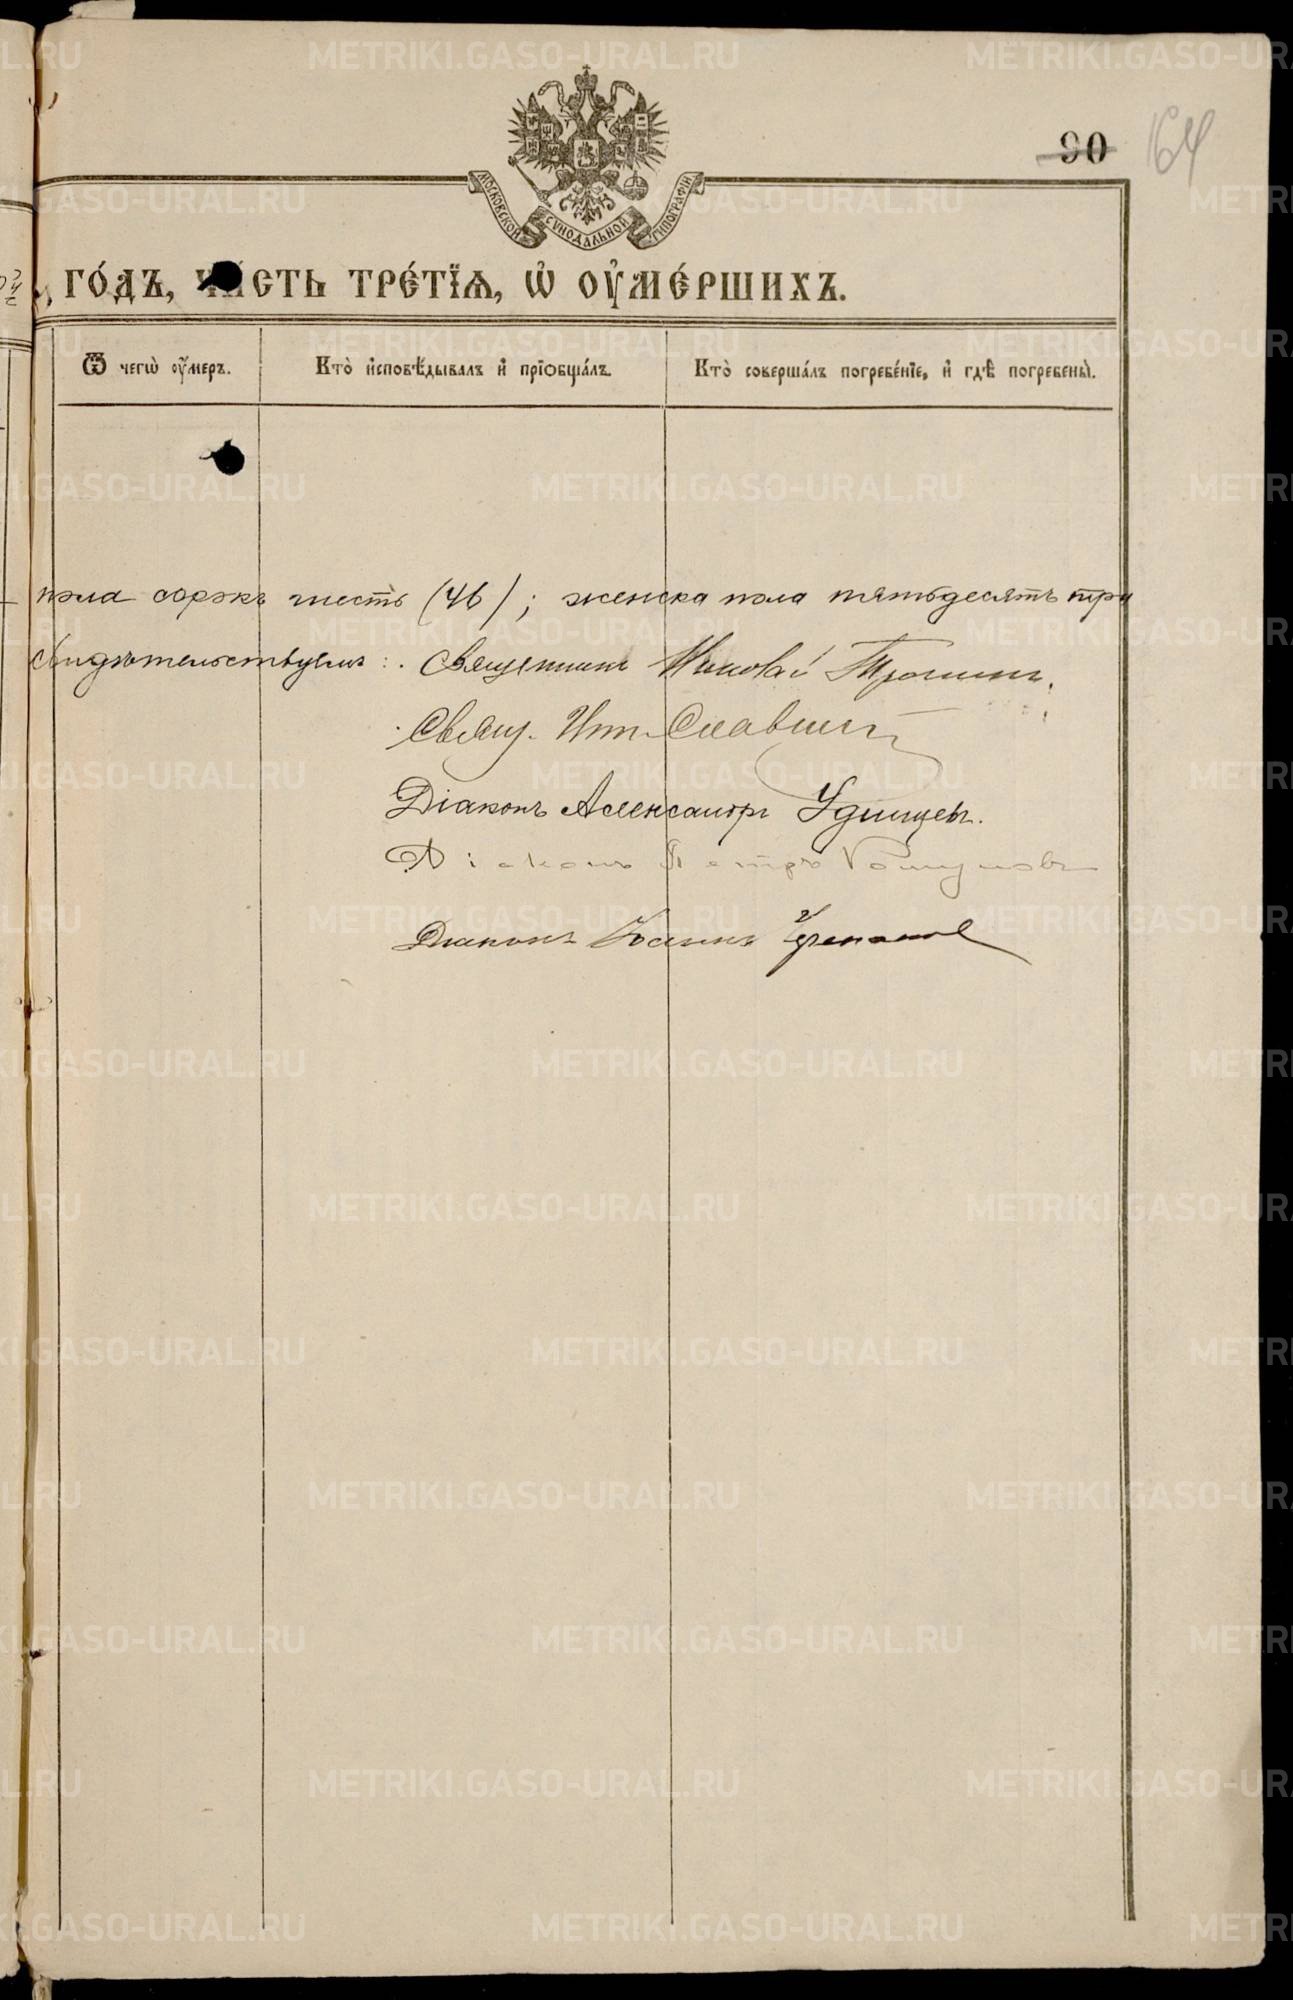 90 164
МОСКОВСКОЙ СѴНОДАЛЬНОЙ ТИПОГРАФІИ
го́дъ, ча́сть тре́тїѧ, ѡ҆ ᲂу҆ме́ршихъ.
Ѿ чегѡ̀ ᲂу҆́меръ.
Кто̀ и҆сповѣ́дывалъ и҆ прїобща́лъ.
Кто̀ соверша́лъ погребе́нїе, и҆ гдѣ̀ погребены̀.
пола сорокъ шесть (46); женска пола пятьдесятъ три
Свидѣтельствуемъ: Священникъ Николай Тронинъ.
Свящ. Инн. Славнин
Діаконъ Александръ Удинцевъ.
Діаконъ Петръ
Діаконъ Іоаннъ
METRIKI.GASO-URAL.RU